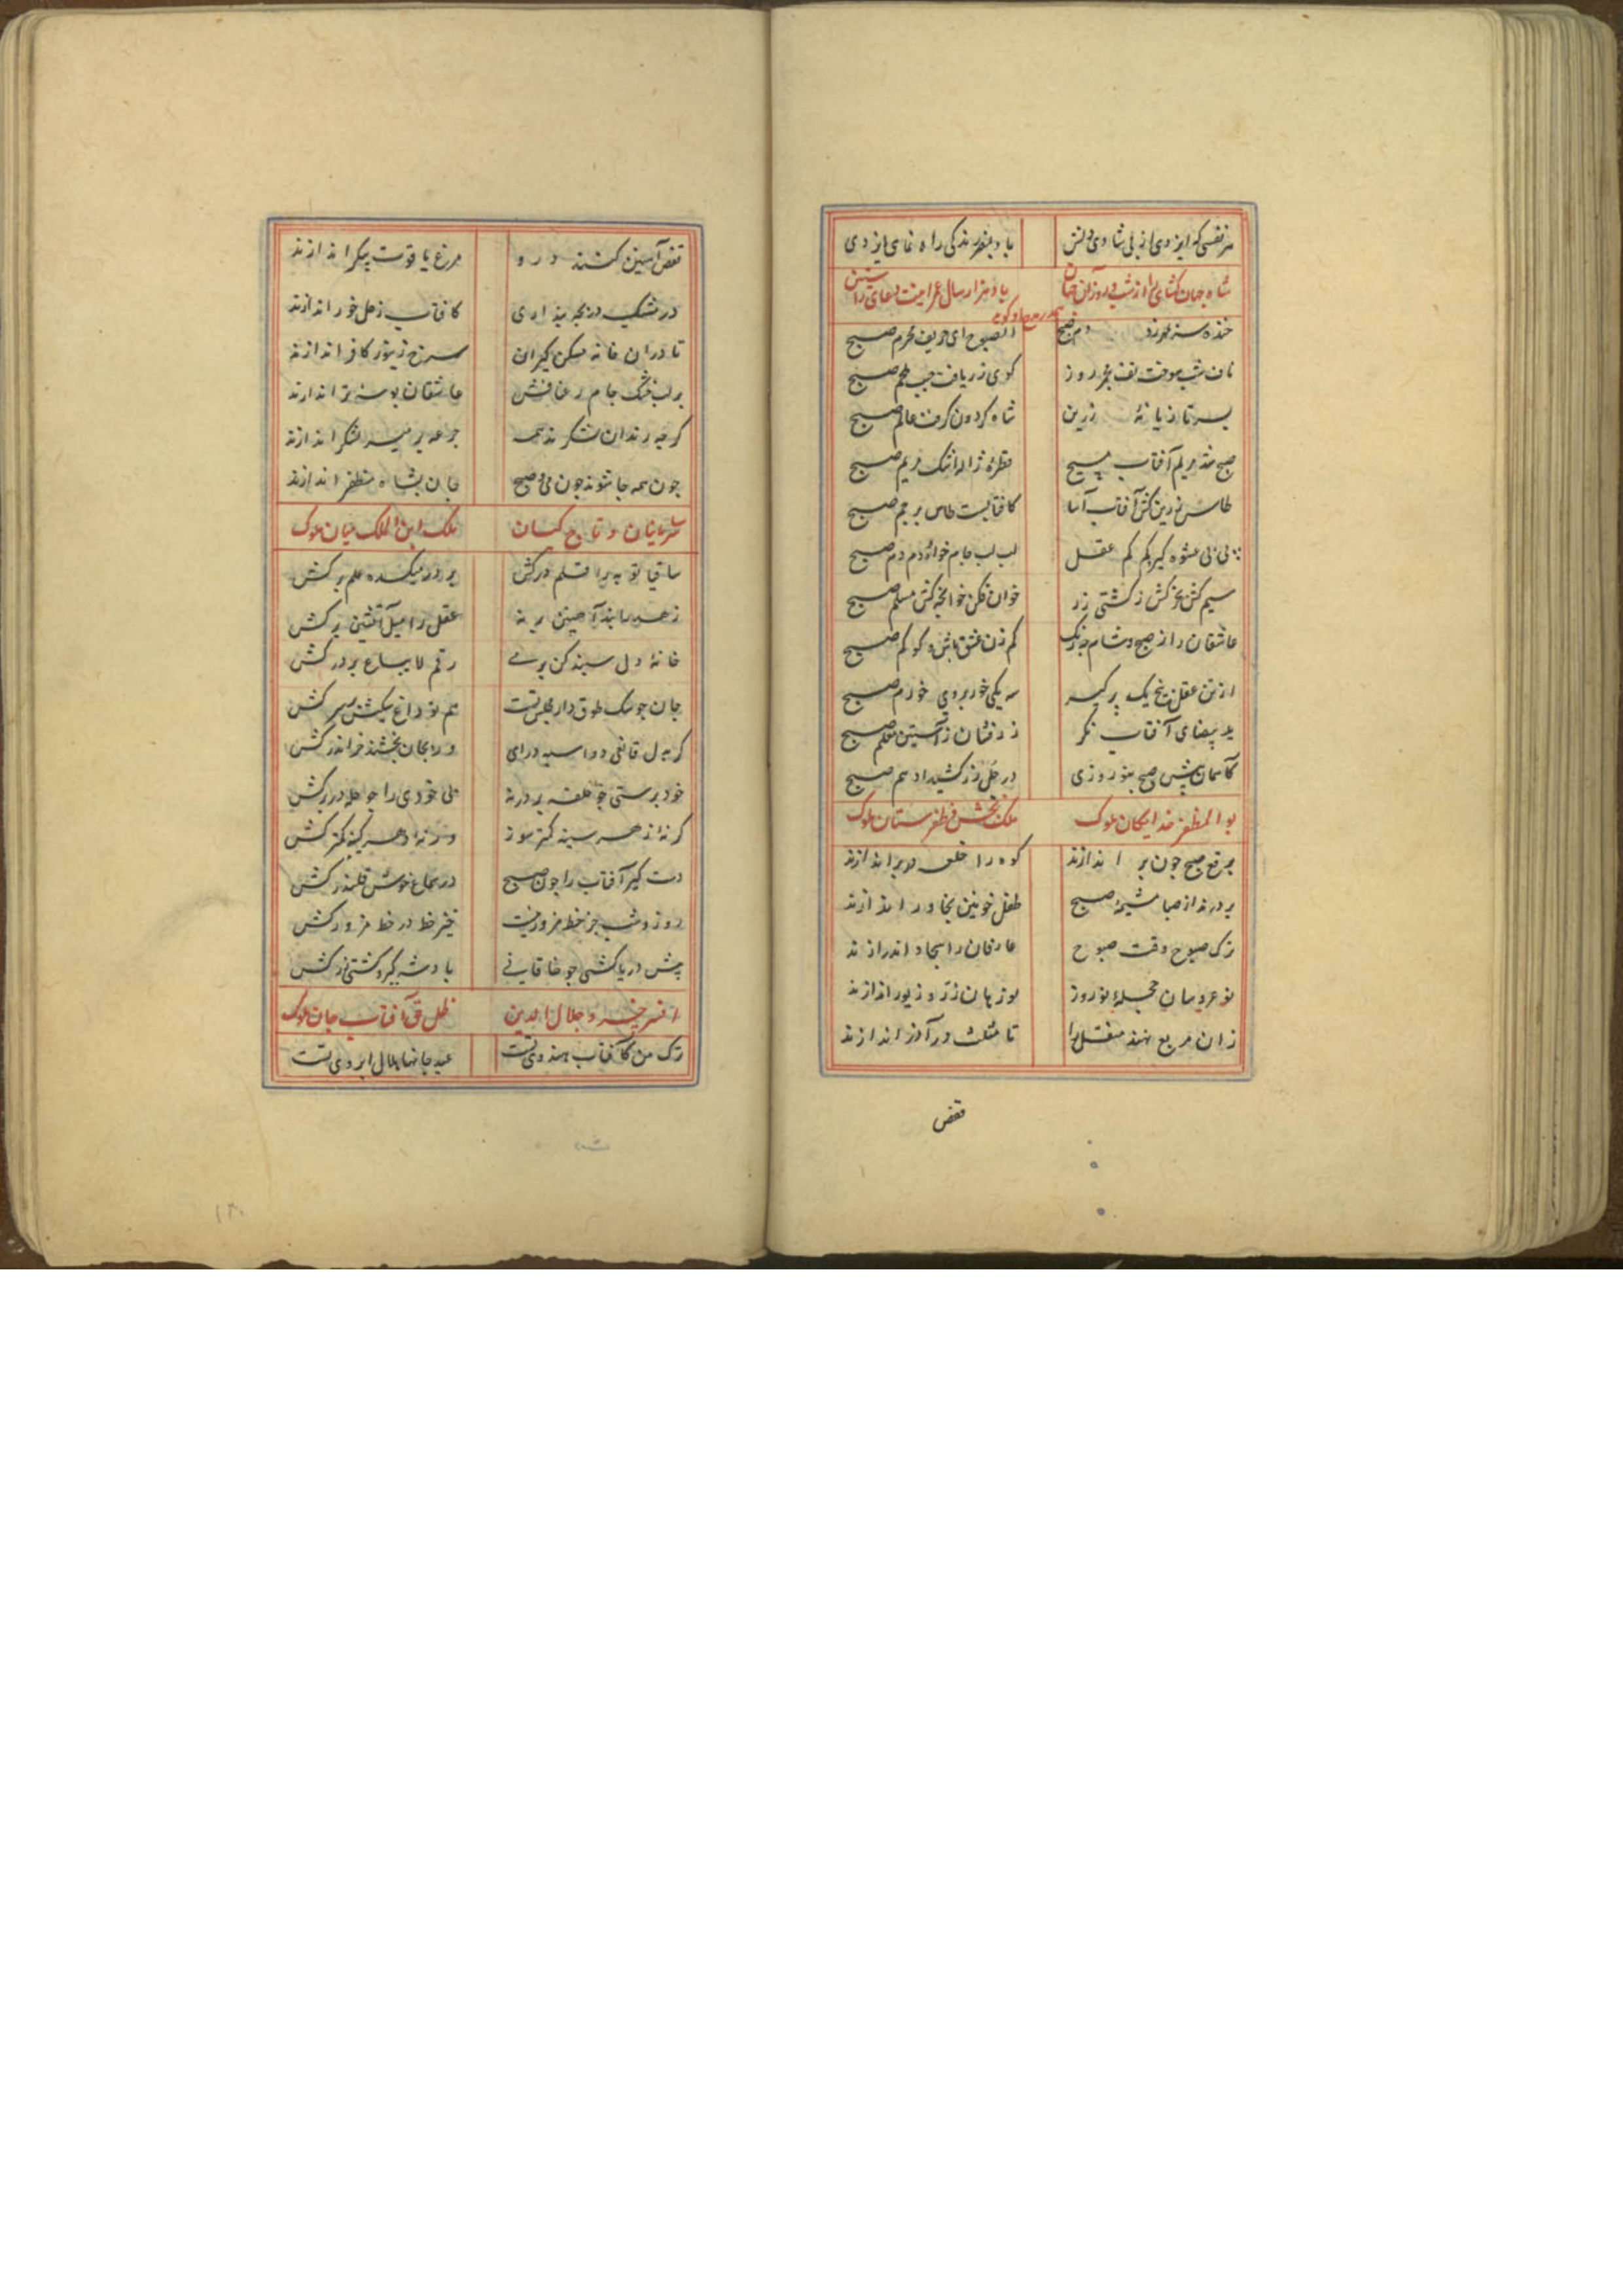 هر نفسی که ایزدی از پی شادی دلش باد بنظر بندگی راه نمای ایزدی
شاه جهان کشای را از شب و روز آن جهان باد هزار سال عمر اینت دعای راستین
خنده سر بمهر زد دم صبح الصبوح ای حریف محرم صبح
ناف شب سوخت تف مجمر روز گوی زر یافت جیب ملحم صبح
بسر تازیانهٔ زرین شاه گردون گرفت عالم صبح
صبح شد مریم آفتاب مسیح قطرهٔ ژاله اشک مریم صبح
طاس زرین کش آفتاب آسا کافتابست طاس پرچم صبح
پی پی عشوه گیر کم کم عقل لب لب جام خواه و دم دم صبح
سیم کش بحر کش ز کشتی زر خوان فکن خوانچه کن مسلم صبح
عاشقان را ز صبح و شام چه رنگ کم زن عشق باش و گو کم صبح
از تن عقل پنج یک برگیر سه یکی خور بروی خرم صبح
ید بیضای آفتاب نگر زرفشان ز آستین معلم صبح
کآسمان پیش صبح بنوروزی در حلی زر کشید ادهم صبح
بو المظفر خدایگان ملوک ملک بخش و ظفرستان ملوک
برقع صبح چون بر اندازند کوه را خلعه در بر اندازند
بردرند از صبا مشیمهٔ صبح طفل خونین بخاور اندازند
ترک صبوح وقت صبوح عارفان را سجاده اندر اندازند
نو عروسان حجلهٔ نوروز نورهان زر و زیور اندازند
زان مربع نهند منقل را تا مثلث در آذر اندازند
قفص
قفص آهنین کنند درو مرغ یاقوت پیکر اندازند
در مشبک دریچه پنداری کافتاب زحل خور اندازند
تا در آن خانه مسکن گیران سرخ زنبور کافر اندازند
بر لب خشک جام رعنا فش عاشقان بوسهٔ تر اندازند
گرچه رندان لشکرند همه جرعه بر میر لشکر اندازند
چون همه جا شوند چون می و صبح جان بشاه مظفر اندازند
سر سامان و تاج کسان ملک ابن الملک میان ملوک
ساقیا توبه را قلم درکش بر در میکده علم برکش
زهد را بند آهنین بر نه عقل را میل آتشین برکش
خانهٔ دل سبیل کن بر می رقم لا یباع بر در کش
جان چو سگ طوق دار مجلس تست هم تو داغ سگیش بر سر کش
گر به دل قانعی دو اسبه درآی ور بجان بخشند خر اندر کش
خود پرستی چو حلقه بر در نه می خودی را چو حله در بر کش
گرنه از هر سینه کمتر سوز ورنه از هر کینه کمتر کش
دست گیر آفتاب را چون صبح در سماع خوش قلندر کش
روز و شب جز خط مزور نیست خیز خط در خط مزور کش
پیش دریا کشی چو خاقانی باد شه گیر و کشتی زر کش
افسر خسرو جلال الدین ظل حق آفتاب جان ملوک
ترک من کآفتاب هندوی تست عید جانها هلال ابروی تست